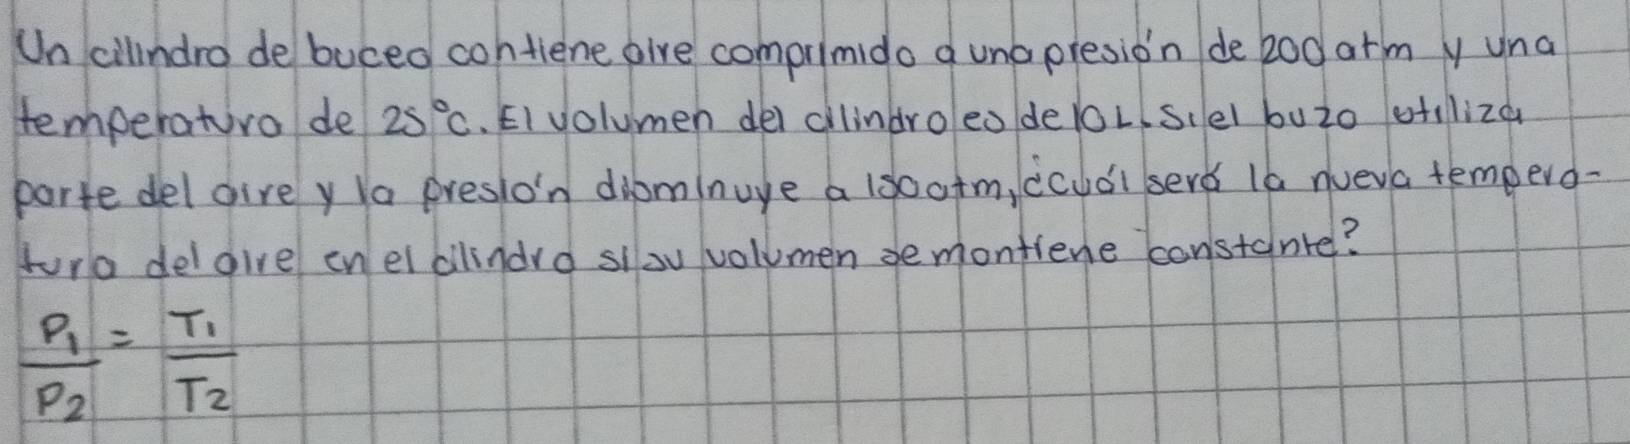 Un cilindro de buceo contiene aire comprimido a una presión de 200 atm y una
temperatura de 25°C. El volumen del cilindro es de 10L. Si el buzo utiliza
parte del aire y la presión disminuye a 150atm, ¿cuál será la nueva tempera-
tura del aire en el cilindro si su volumen se mantiene constante?
P₁/P₂ = T₁/T₂